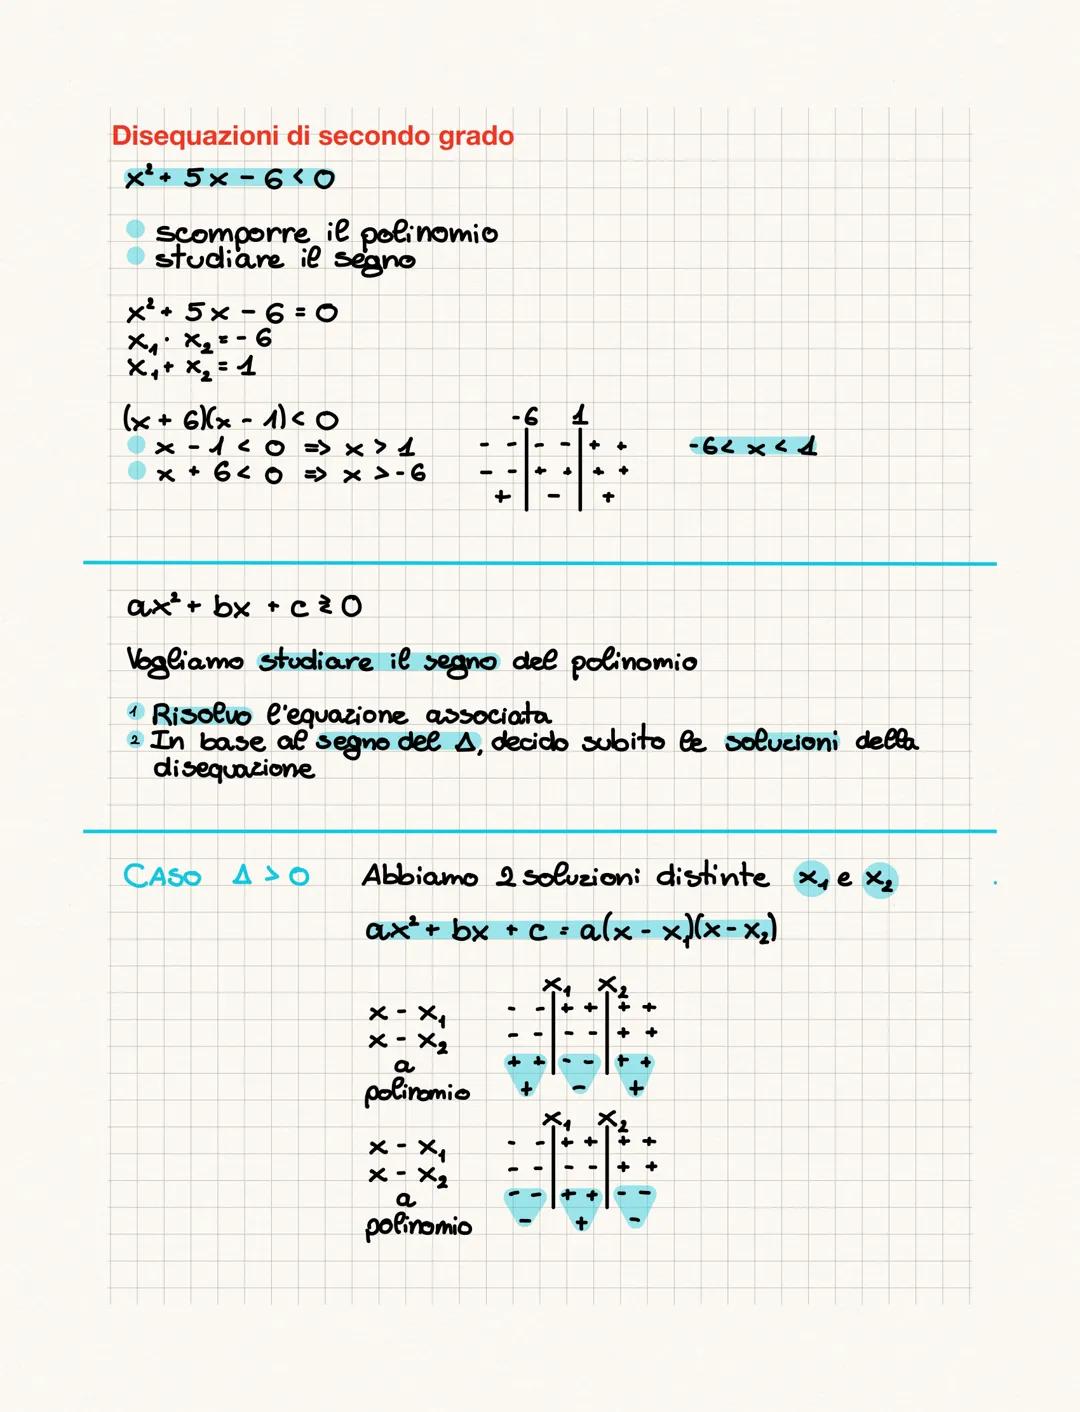 Disequazioni di secondo grado
x² + 5x - 6 < 0
scomporre il polinomio
studiare il segno
x² + 5x - 6 = 0
x₁ · x₂ = - 6
x₁ + x₂ = 1
(x + 6)(x - 1) < 0
-6 1
x - 1 < 0 => x > 1 - - - - + + -6 < x < 1
x + 6 < 0 => x > -6 - - + + + +
+ - +
ax² + bx + c ≷ 0
Vogliamo studiare il segno del polinomio
1 Risolvo l'equazione associata
2 In base al segno del Δ, decido subito le soluzioni della
disequazione
CASO Δ > 0 Abbiamo 2 soluzioni distinte x₁ e x₂
ax² + bx + c = a(x - x₁)(x - x₂)
x₁ x₂
x - x₁ - - + + + +
x - x₂ - - - - + +
a + + - - + +
polinomio + - +
x₁ x₂
x - x₁ - - + + + +
x - x₂ - - - - + +
a - - + + - -
polinomio - + -